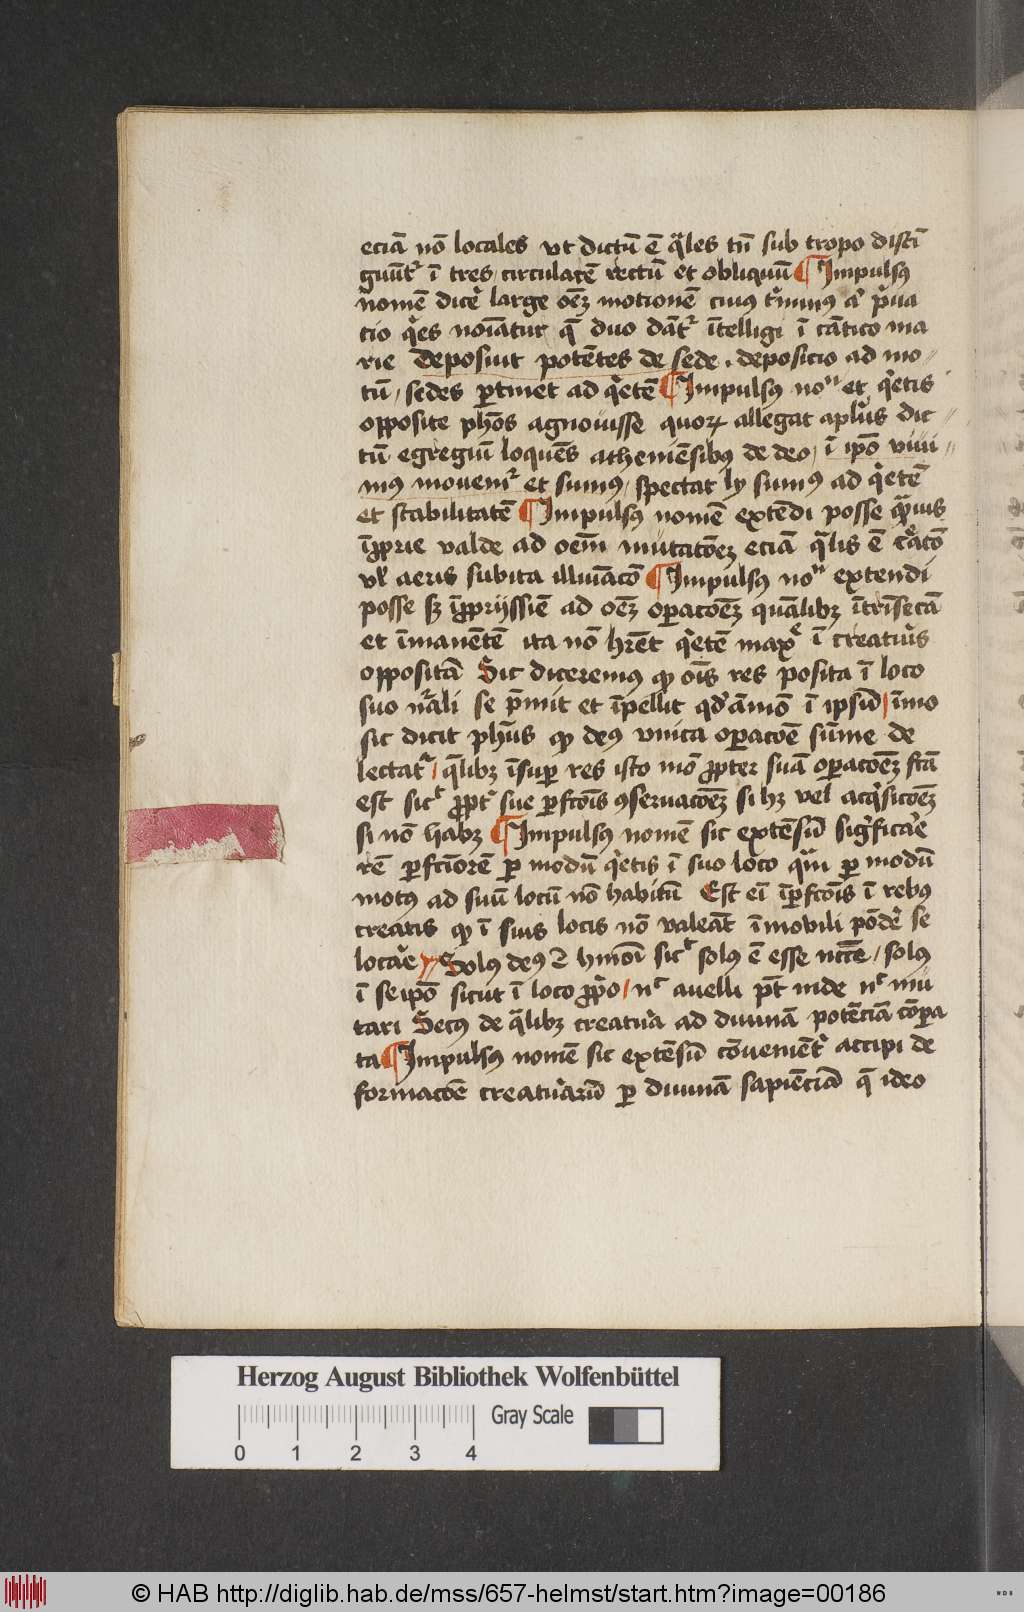 eciā nō locales vt dictū ē q̄les tn̄ sub tropo disti
guūtʳ ī tres circularē rectū et obliquū ¶ Impulsꝯ
nomē dicẻ large oēꝫ motionē cuius t̓minus
tio q̓es noīatur q̄ duo dātʳ ītelligi ī cātico ma
rie Deposuit potētes de sede . depositio ad mo
tū / sedes ꝑtinet ad q̓etē ¶ Impulsꝯ noⁿ et q̓etis
opposite ph̄os agnouisse quoꝝ allegat apl̓us dic
tū egregiū loquēs atheniēsibꝯ de deo / ī ip̄o viui
mꝯ mouemʳ et sumꝯ / spectat ly sumꝯ ad q̓etē
et stabilitatē ¶ Impulsꝯ nomē extēdi posse
īp̱prie valde ad oēm mutatōeꝫ eciā q̄lis ē
vl̓ aeris subita illuīatō ¶ Impulsꝯ noⁿ extendi
posse sꝫ īꝓprijssīe ad oēꝫ oꝑatōeꝫ quālibꝫ ītrīsecā
et īmanētē ita nō hn̄t q̓etē maxᵉ ī creatur̓is
oppositā Sic diceremꝯ ꝙ oīs res posita ī loco
suo nr̄ali se p̄mit et īpellit qd̓āmō ī ipsū / īmo
sic dicit ph̄us ꝙ deꝯ vnica oꝑatōe sūme de
lectatʳ / q̄libꝫ īsuꝑ res isto mō ꝓpter suā oꝑatōeꝫ
est sicᵗ ꝓptʳ sue ꝑfc̄ōis ꝯseruatōeꝫ si hꝫ vel acq̓sitōeꝫ
si nō habꝫ ¶ Impulsꝯ nomē sic extēsū sig̓ficar̓e
rē ꝑfc̄iorē ꝑ modū q̓etis ī suo loco q̄ꝫ ꝑ modū
motꝯ ad suū locū nō habitū Est eī īꝑfc̄ōis ī rebꝯ
creatis ꝙ ī suis locis nō valeāt īmobili pōdẻ se
locar̓e Solꝯ deꝯ hm̄ōi sicᵗ solꝯ ē esse nc̄c̄e / solꝯ
ī seip̄o sicut ī loco ꝓp̄o / nᶜ auelli pt̄ inde nᶜ mu
tari Secꝯ de q̄libꝫ creatur̓a ad diuinā potēciā cōꝑa
ta ¶ Impulsꝯ nomē sic extēsū cōuenīetʳ accipi de
formatōe creatur̓arū ꝑ diuinā sapiēciā q̄ ideo
Herzog August Bibliothek Wolfenbüttel
Gray Scale
0 1 2 3 4
© HAB http://diglib.hab.de/mss/657-helmst/start.htm?image=00186